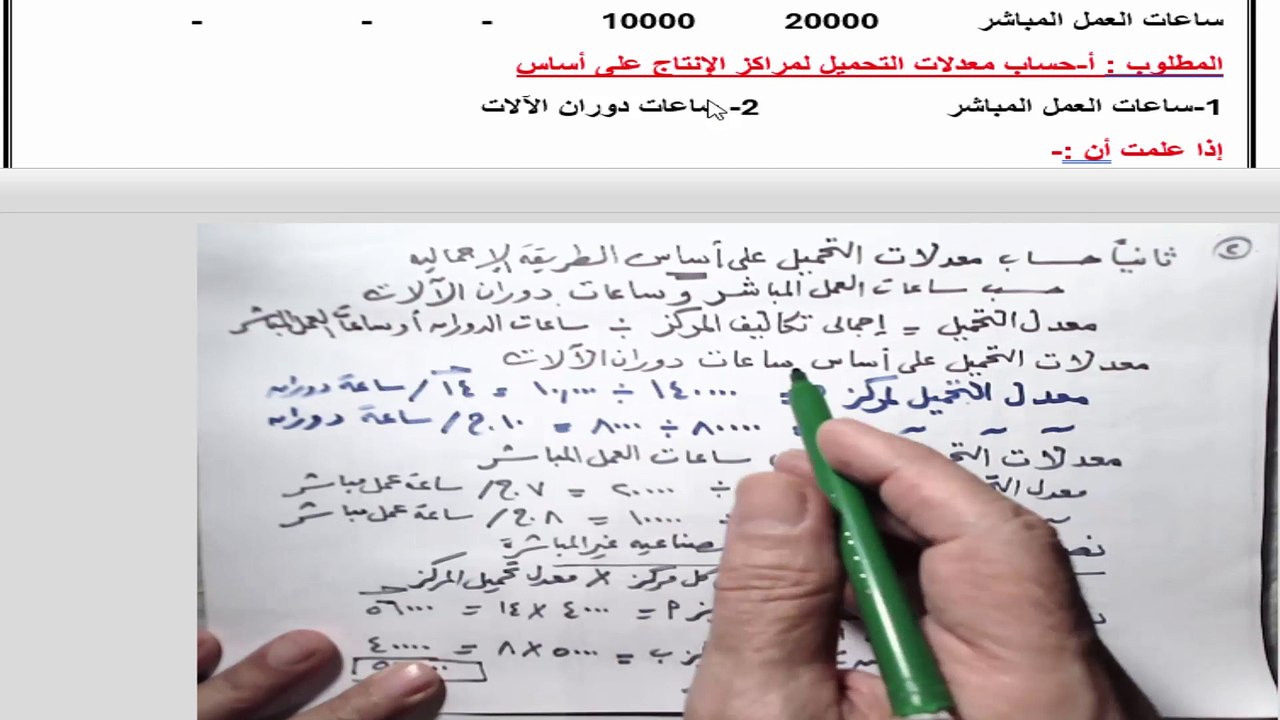 ساعات العمل المباشر 20000 10000 - - -
المطلوب : أ-حساب معدلات التحميل لمراكز الإنتاج على أساس
1-ساعات العمل المباشر 2-ساعات دوران الآلات
إذا علمت أن :-
٢
ثانياً حساب معدلات التحميل على أساس الطريقة الإجماليه
حسب ساعات العمل المباشر وساعات دوران الآلات
معدل التحميل = إجمالى تكاليف المركز ÷ ساعات الدوران أو ساعات العمل المباشر
معدلات التحميل على أساس ساعات دوران الآلات
معدل التحميل لمركز = ١٤٠٠٠٠ ÷ ١٠,٠٠٠ = ١٤ / ساعة دوران
٨٠٠٠٠ ÷ ٨٠٠٠ = ١٠ ج / ساعة دوران
معدلات ساعات العمل المباشر
معدل ÷ ٢٠٠٠٠ = ٧ ج / ساعة عمل مباشر
÷ ١٠٠٠٠ = ٨ ج / ساعة عمل مباشر
غير المباشرة
كل مركز × معدل تحميل المركز
= ٤٠٠٠ × ١٤ = ٥٦٠٠٠
ب = ٥٠٠٠ × ٨ = ٤٠٠٠٠